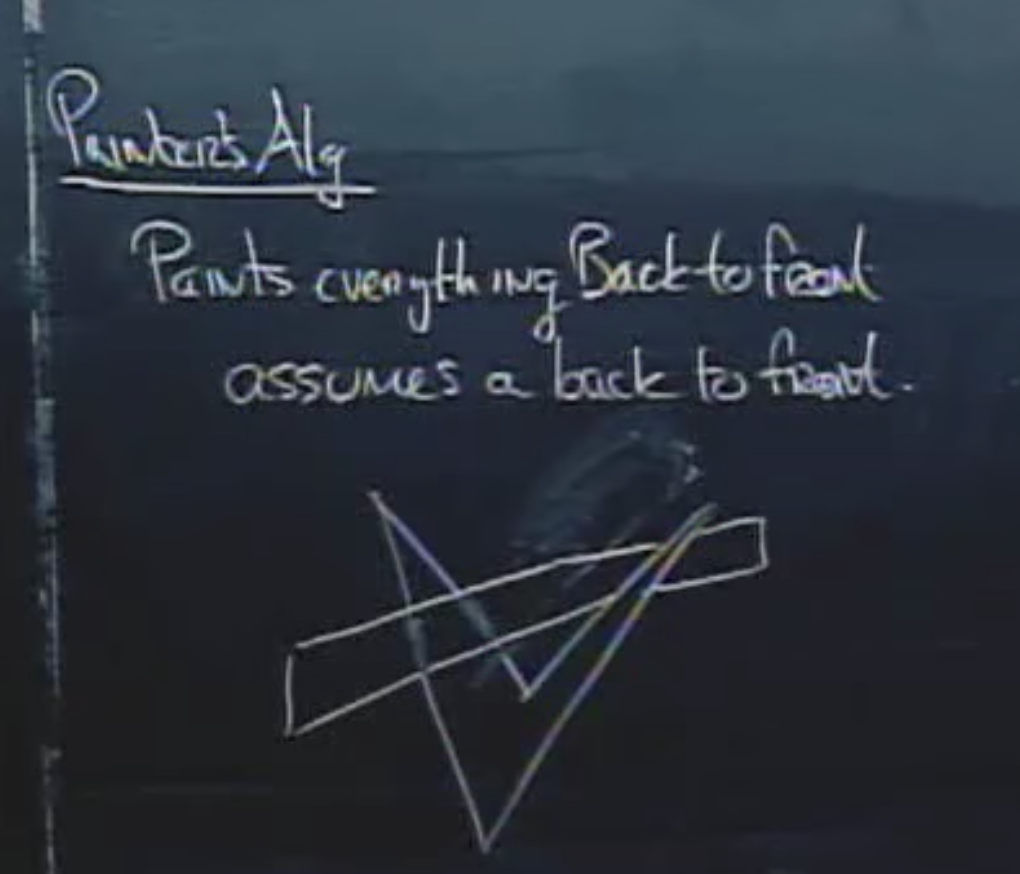 Painter's Alg
Paints everything Back to front
assumes a back to front.